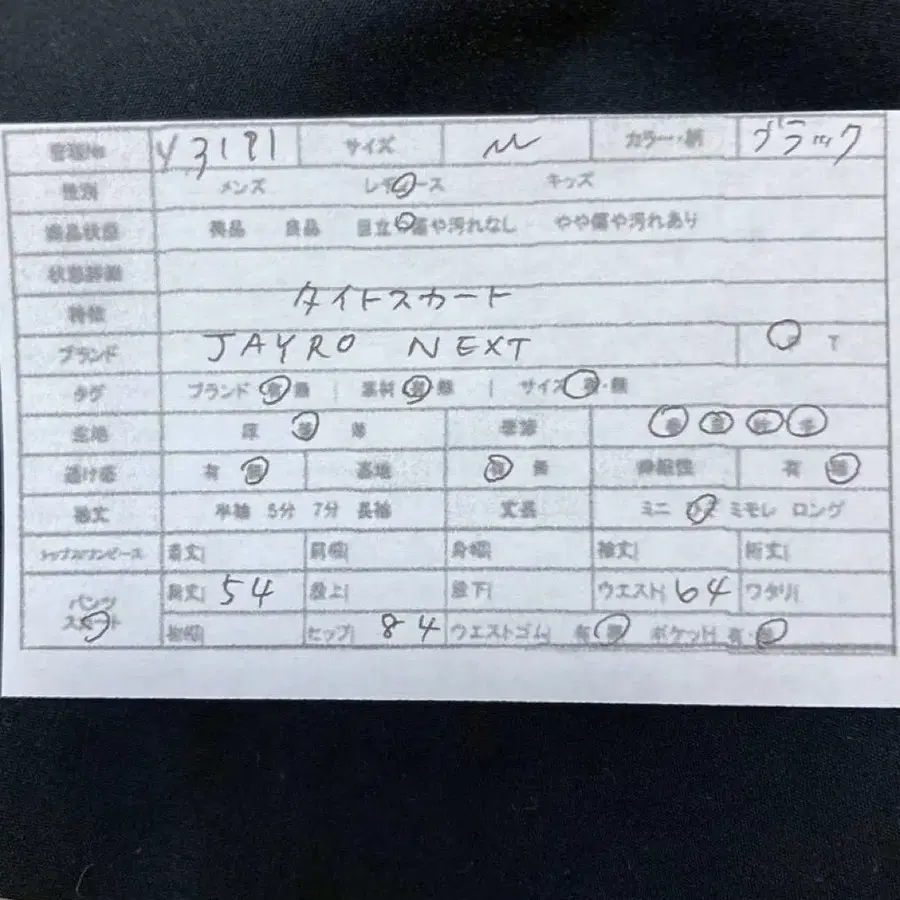 管理No Y3191 サイズ M カラー・柄 ブラック
性別 メンズ レディース キッズ
商品状態 美品 良品 目立つ傷や汚れなし やや傷や汚れあり
状態詳細
特徴 タイトスカート
ブランド JAYRO NEXT T
タグ ブランド 有 無 | 素材 有 無 | サイズ 有・無
生地 厚 普 薄 季節 春 夏 秋 冬
透け感 有 無 裏地 有 無 伸縮性 有 無
袖丈 半袖 5分 7分 長袖 丈長 ミニ ミモレ ロング
トップス/ワンピース 着丈| 肩幅| 身幅| 袖丈| 裄丈|
パンツ
スカート
長丈| 54 股上| 股下| ウエスト| 64 ワタリ|
裾幅| ヒップ| 84 ウエストゴム 有 無 ポケット| 有・無